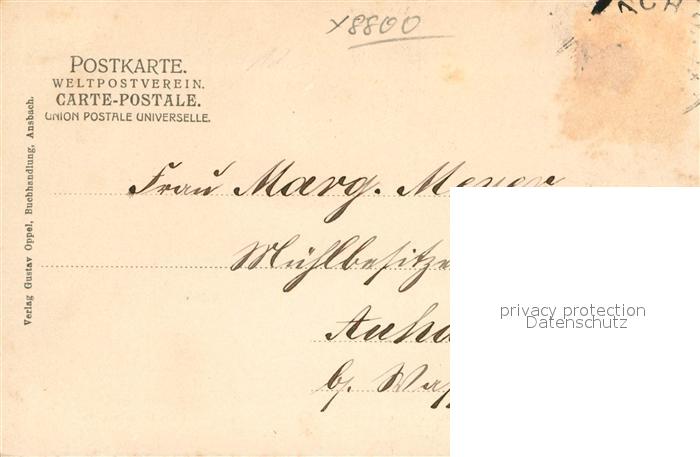 x8800
POSTKARTE.
WELTPOSTVEREIN.
CARTE-POSTALE.
UNION POSTALE UNIVERSELLE.
Verlag Gustav Oppel, Buchhandlung, Ansbach.
Frau Marg. Meyer
Mühlbesitze
privacy protection
Datenschutz
b/.